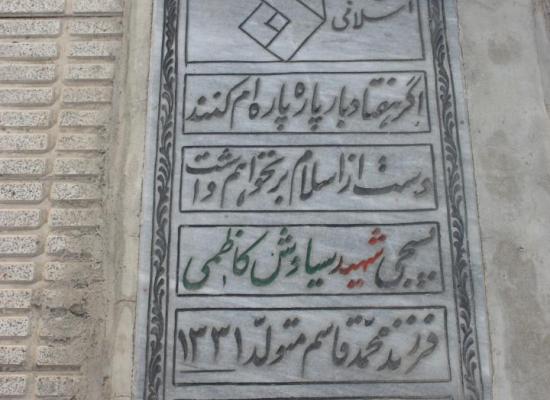 اسلامی
اگر هفتاد بار پاره پاره ام کنند
دست از اسلام برنخواهم داشت
بسیجی شهید سیاوش کاظمی
فرزند محمّد قاسم متولّد ۱۳۳۱